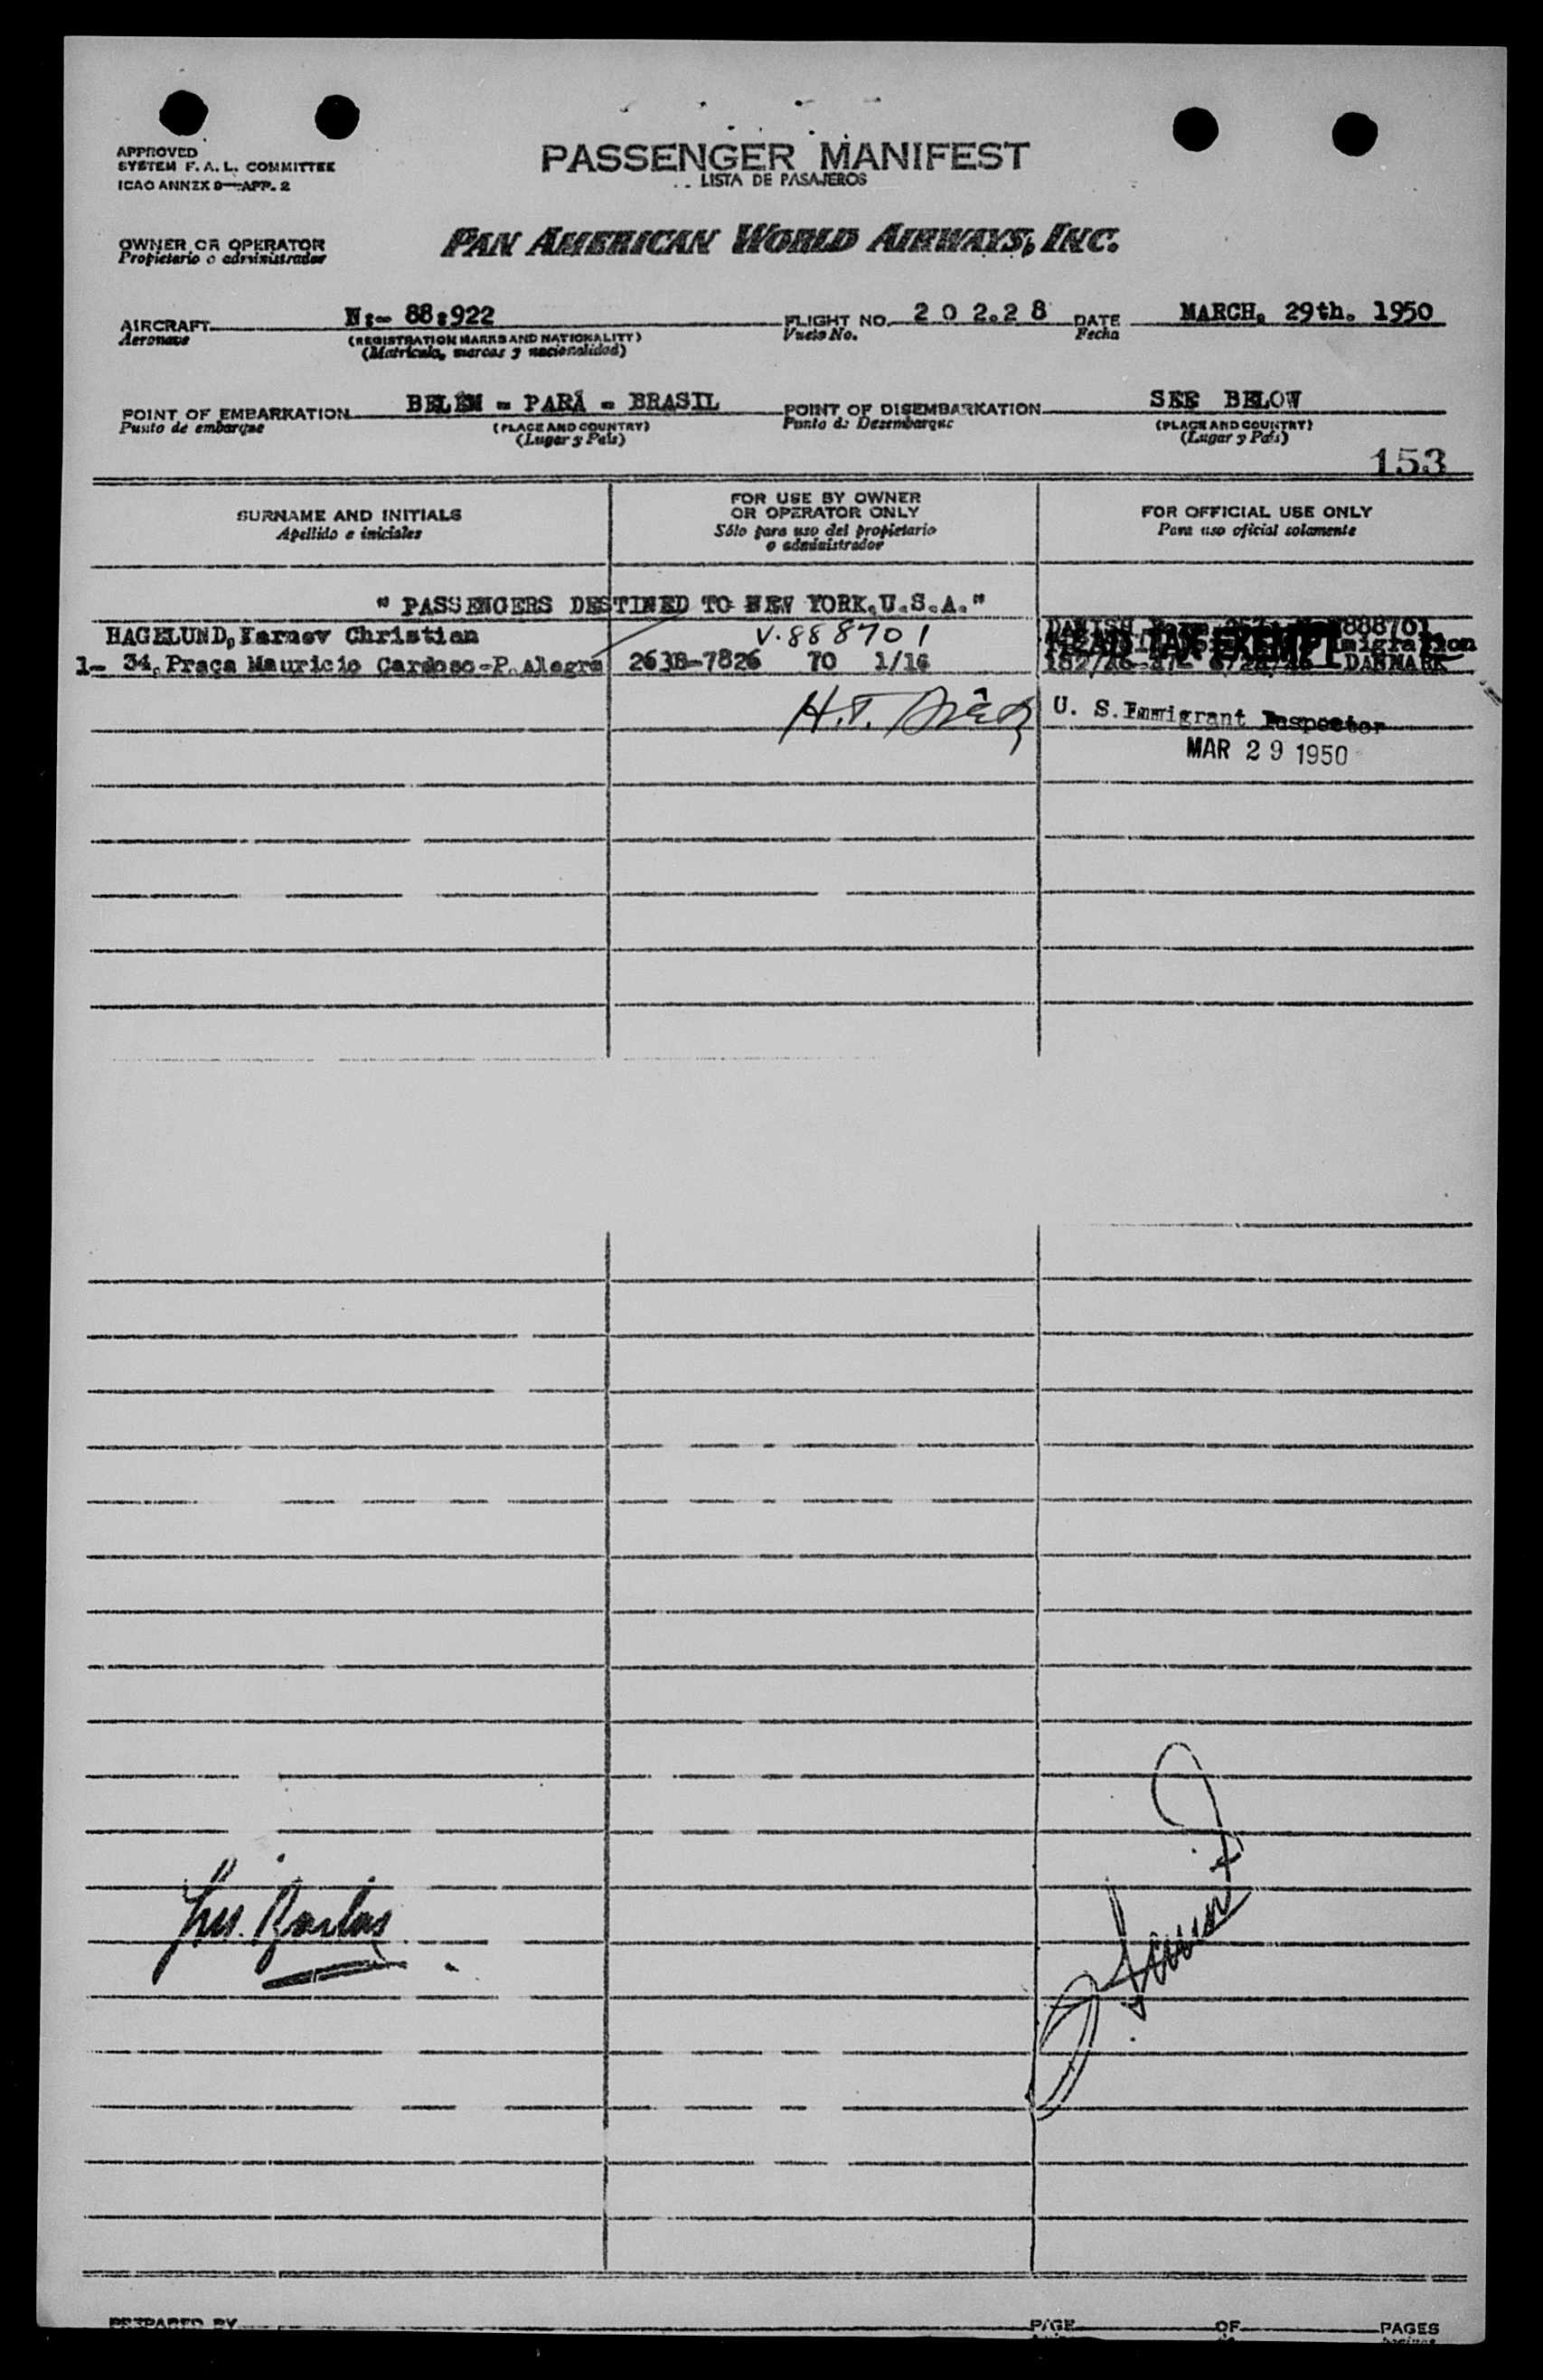 APPROVED
SYSTEM F. A. L. COMMITTEE
ICAO ANNEX 9—APP. 2
PASSENGER MANIFEST
LISTA DE PASAJEROS
OWNER OR OPERATOR
Propietario o administrador
PAN AMERICAN WORLD AIRWAYS, INC.
AIRCRAFT N:- 88:922 FLIGHT NO. 2 0 2.2 8 DATE MARCH. 29th. 1950
Aeronave (REGISTRATION MARKS AND NATIONALITY) Vuelo No. Fecha
(Matrícula, marcas y nacionalidad)
POINT OF EMBARKATION BELÉM - PARÁ - BRASIL POINT OF DISEMBARKATION SEE BELOW
Punto de embarque (PLACE AND COUNTRY) Punto de Desembarque (PLACE AND COUNTRY)
(Lugar y País) (Lugar y País)
153
SURNAME AND INITIALS FOR USE BY OWNER OR OPERATOR ONLY FOR OFFICIAL USE ONLY
Apellido e iniciales Sólo para uso del propietario o administrador Para uso oficial solamente
" PASSENGERS DESTINED TO NEW YORK.U.S.A."
HAGELUND, Christian V.888701 DANISH 888701
HEAD TAX EXEMPT
1- 34, Praça Mauricio Cardoso-P.Alegre 263B-7826 70 1/16 DANMARK
H.T. U. S. Immigrant Inspector
MAR 29 1950
PREPARED BY PAGE OF PAGES